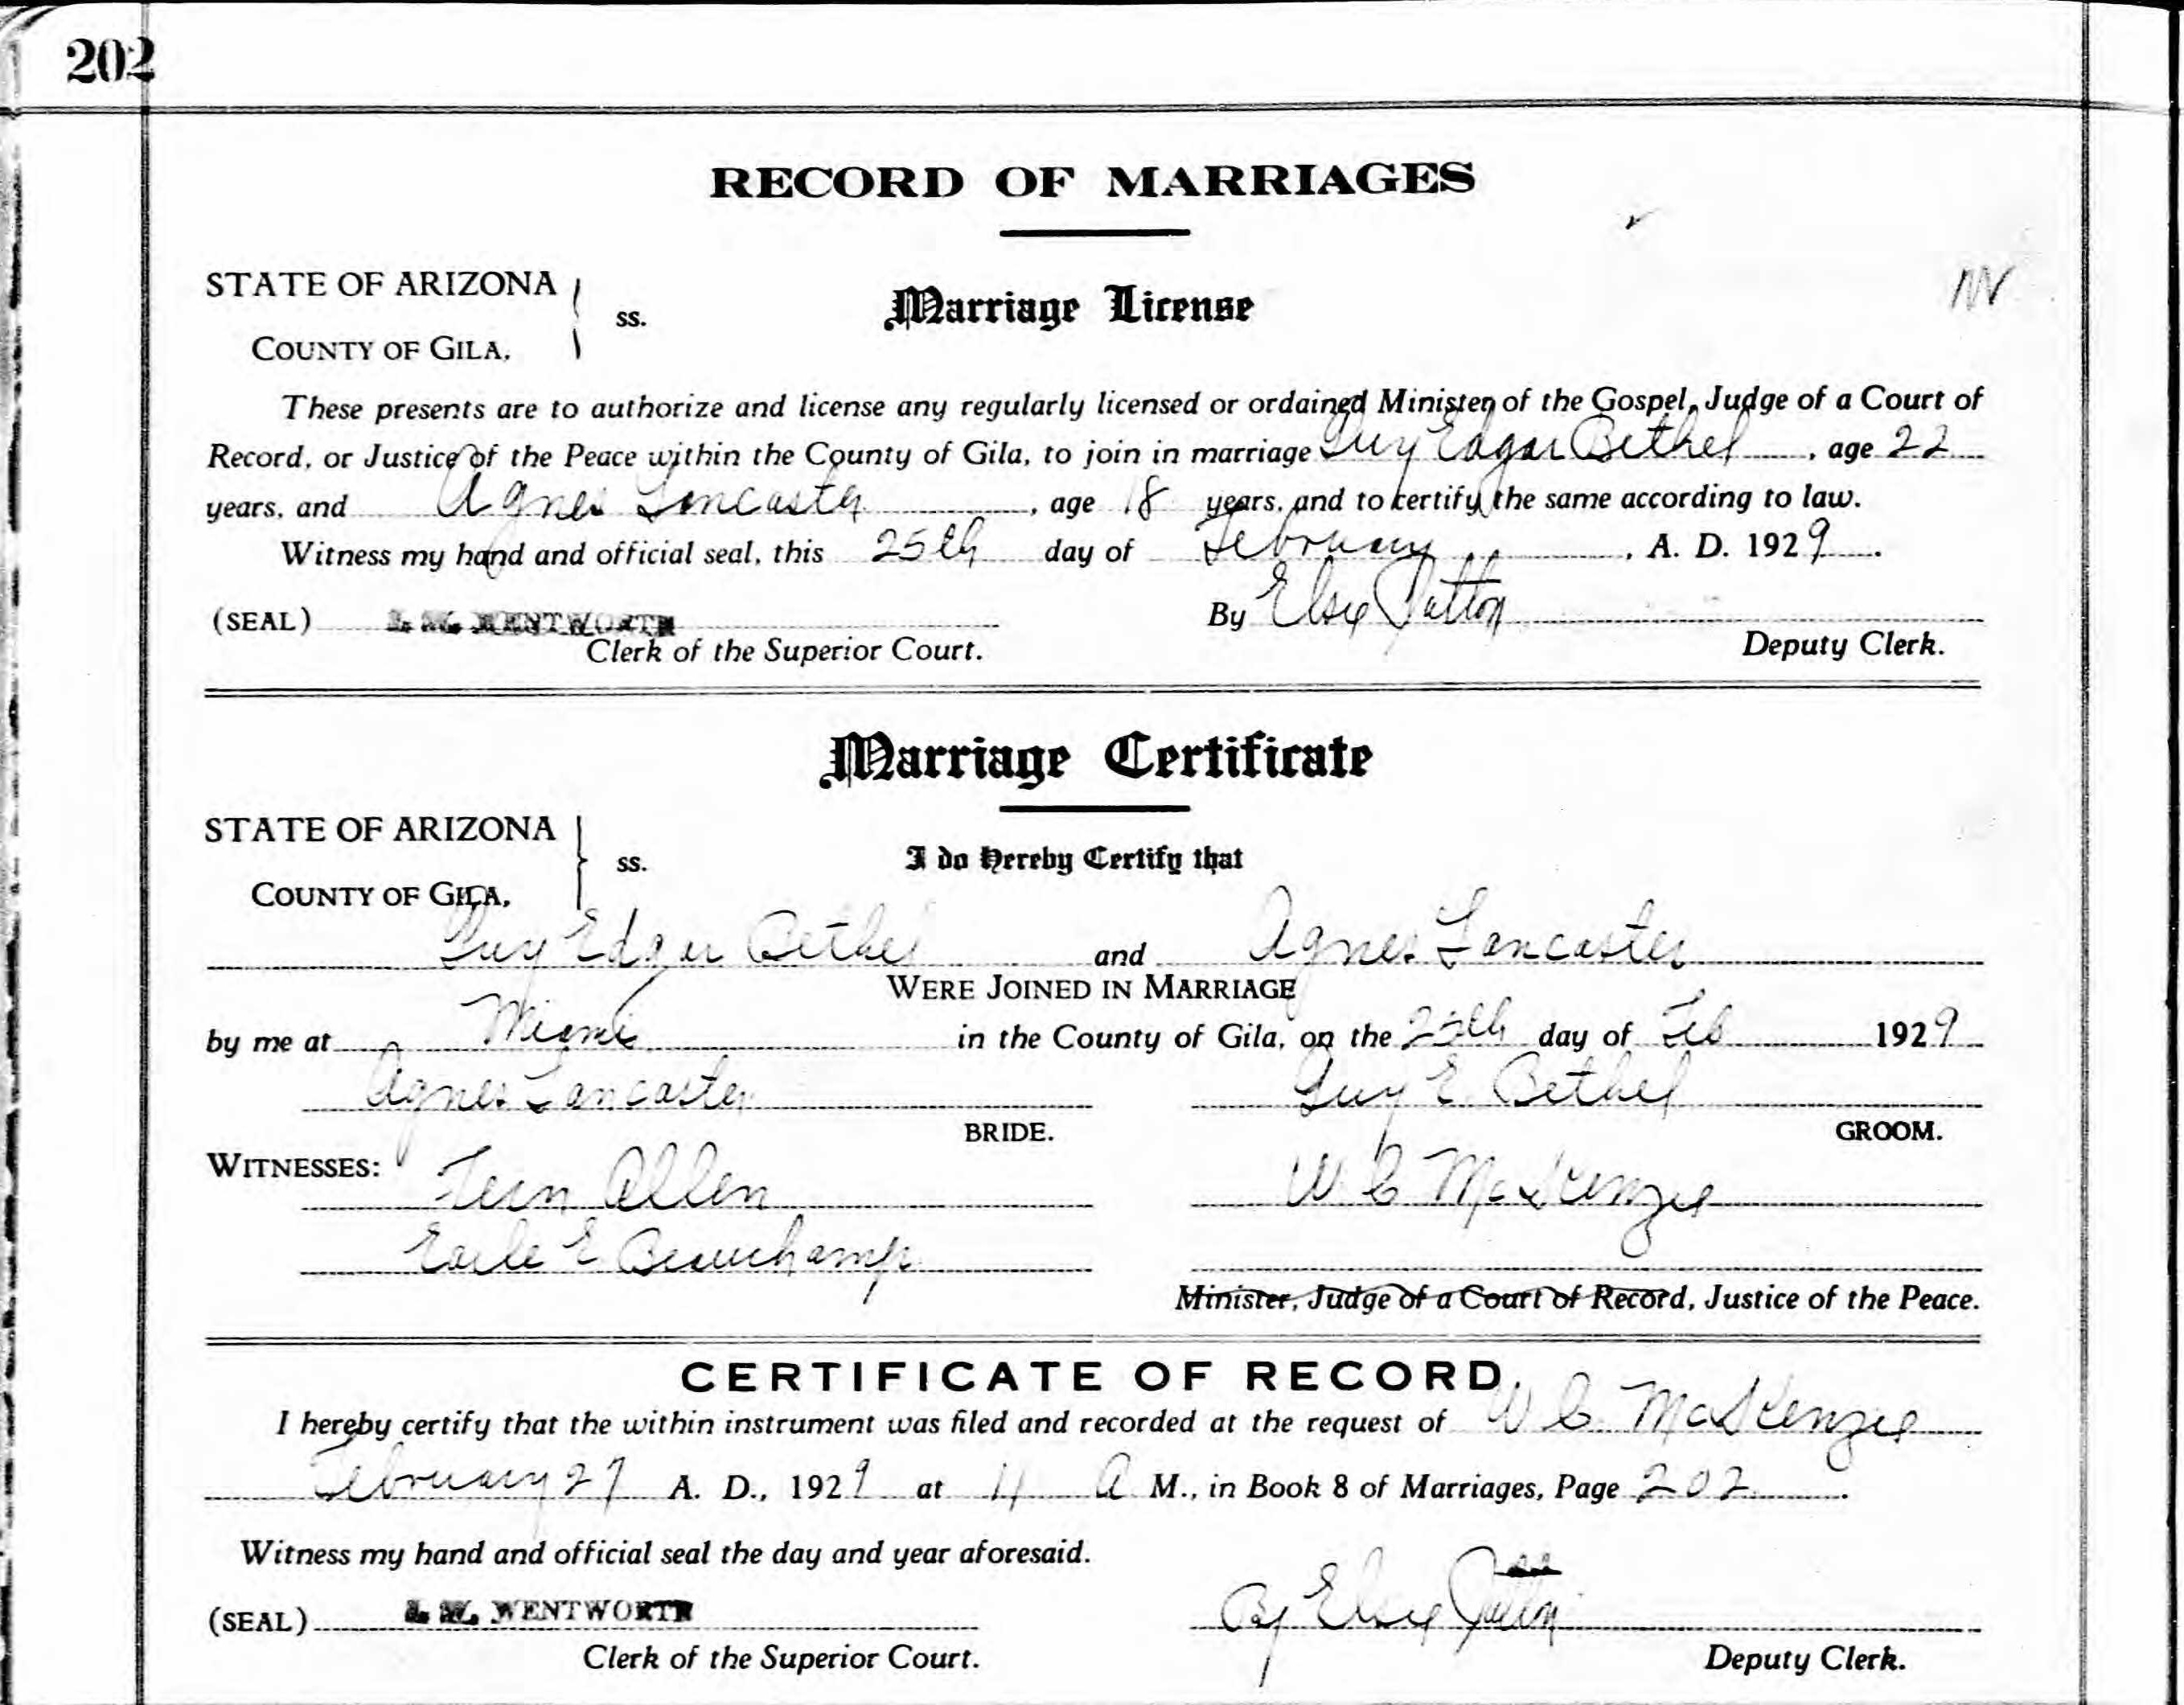 202
RECORD OF MARRIAGES
STATE OF ARIZONA
COUNTY OF GILA.
ss.
Marriage License
These presents are to authorize and license any regularly licensed or ordained Minister of the Gospel, Judge of a Court of
Record, or Justice of the Peace within the County of Gila, to join in marriage Guy Edgar Bethel, age 22
years, and Agnes Lancaster, age 18 years, and to certify the same according to law.
Witness my hand and official seal, this 25th day of February, A. D. 1929.
(SEAL) WENTWORTH By Elsie Patton
Clerk of the Superior Court. Deputy Clerk.
Marriage Certificate
STATE OF ARIZONA
COUNTY OF GILA.
ss.
I do Hereby Certify that
Guy Edgar Bethel and Agnes Lancaster
WERE JOINED IN MARRIAGE
by me at Miami in the County of Gila, on the 25th day of Feb 1929
Agnes Lancaster Guy E. Bethel
BRIDE. GROOM.
WITNESSES: Fern Allen W C McKenzie
Earle E Beauchamp
Minister, Judge of a Court of Record, Justice of the Peace.
CERTIFICATE OF RECORD.
I hereby certify that the within instrument was filed and recorded at the request of W C. McKenzie
February 27 A. D., 1929 at 11 A M., in Book 8 of Marriages, Page 202.
Witness my hand and official seal the day and year aforesaid.
(SEAL) WENTWORTH By Elsie Patton
Clerk of the Superior Court. Deputy Clerk.